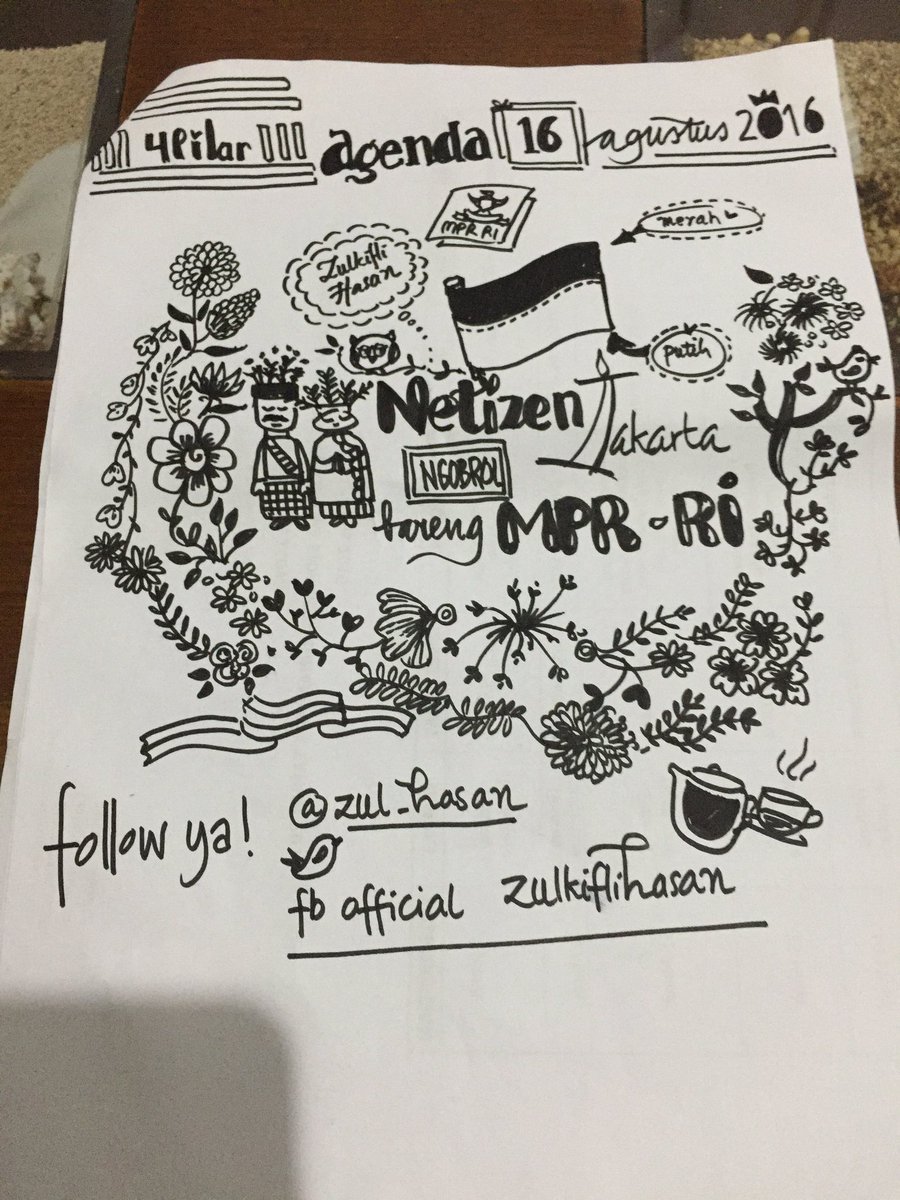 4Pilar agenda 16 agustus 2016
MPR RI
merah
Zulkifli
Hasan
putih
Netizen Jakarta
NGOBROL
bareng MPR-RI
follow ya! @zul_hasan
fb official zulkiflihasan